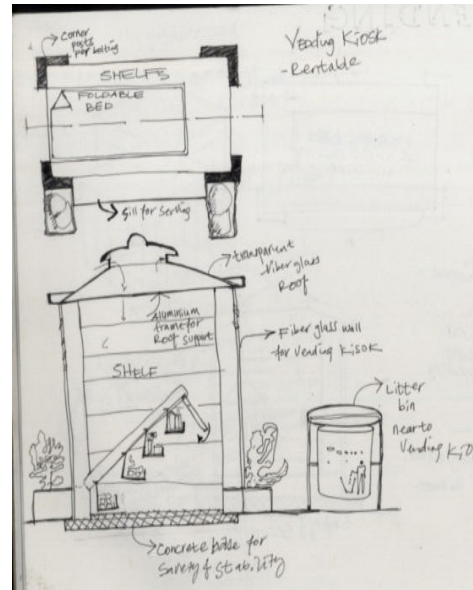 Corner
posts
for bolting
Vending Kiosk
- Rentable
SHELFS
FOLDABLE
BED
Sill for serving
transparent
Fiber glass
Roof
Aluminium
frame for
Roof support
Fiber glass wall
for Vending Kisok
SHELF
Litter
bin
near to
Vending Kio
Concrete base for
Safety & Stability